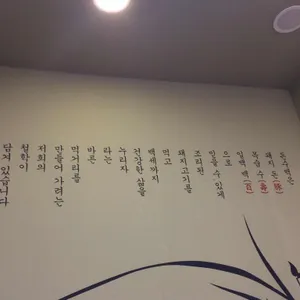 돈수백은
돼지 돈(豚)
목숨 수(壽)
일백 백(百)
으로
믿을 수 있게
조리된
돼지고기를
먹고
백세까지
건강한 삶을
누리자
라는
바른
먹거리를
만들어 가려는
저희의
철학이
담겨 있습니다